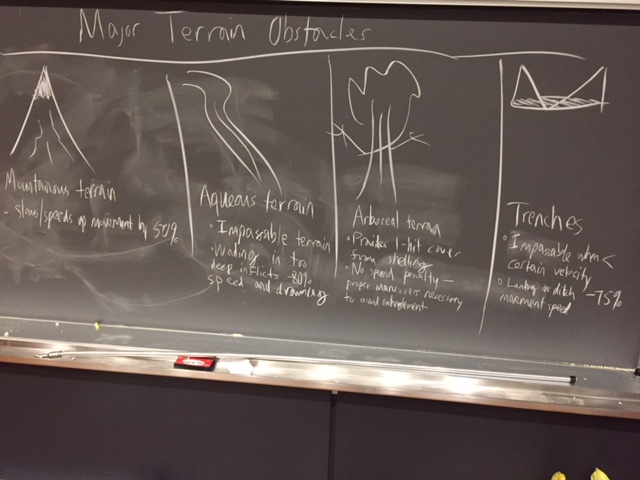 Major Terrain Obstacles
Mountainous terrain
- slows/speeds up movement by 50%
Aqueous terrain
• Impassable terrain
• Wading in too
deep inflicts -80%
speed and drowning
Arboreal terrain
• Provides 1-hit cover
from shelling
• No speed penalty –
proper maneuvers necessary
to avoid
Trenches
• Impassable when <
certain velocity
• Landing in ditch -75%
movement speed